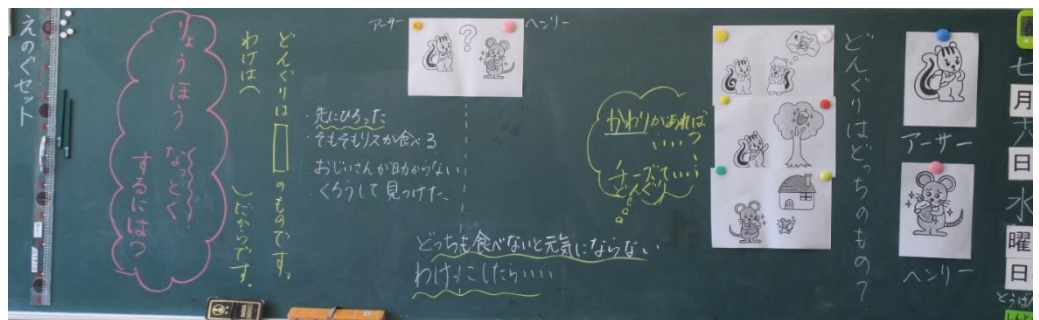 七
月
六
日
水
曜
日
とうばん
アーサー
ヘンリー
どんぐりはどっちのもの？
かわりがあれば
いい？
チーズでいい？
どんぐり
アーサー
？
ヘンリー
・先にひろった
・そもそもリスが食べる
おじいさんが助からない
くろうして見つけた
どっちも食べないと元気にならない
わけっこしたらいい
どんぐりは のものです。
わけは( )だからです。
りょうほう なっとく
するには？
えのぐセット